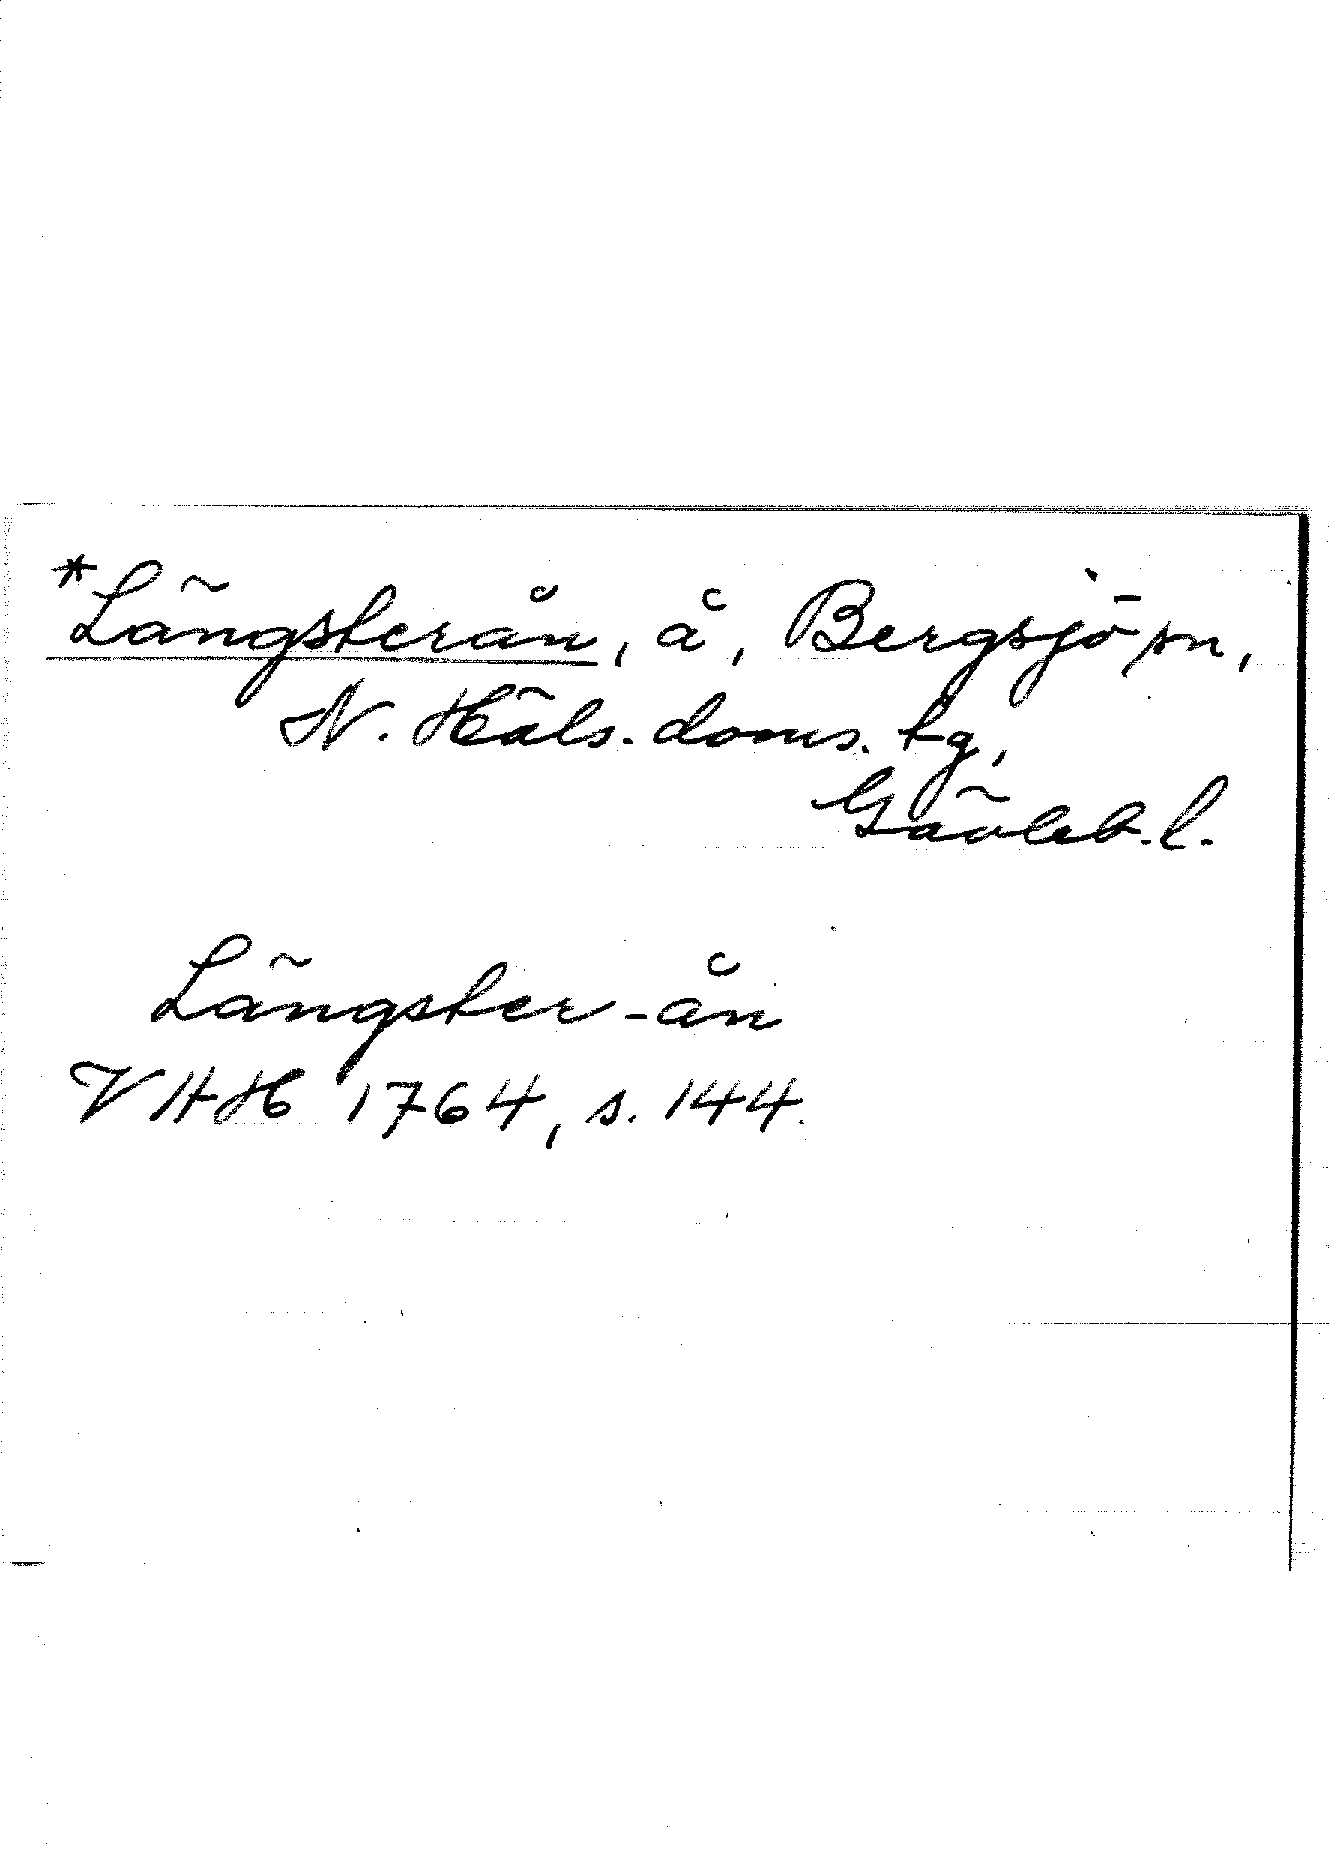 *Längsterån, å, Bergsjö sn,
N. Häls. doms. tg,
Gävleb. l.
Längster-ån
VHH 1764, s. 144.